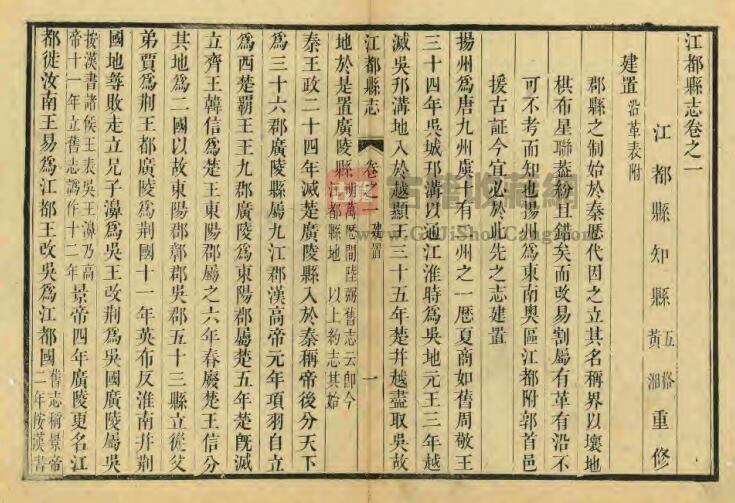 江都縣志卷之一
江都縣知縣 五格 黃湘 重修
建置 沿革表附
郡縣之制始於秦歷代因之立其名稱界以壤地
棋布星聯葢紛且錯矣而改易割屬有革有沿不
可不考而知也揚州為東南奧區江都附郭首邑
援古証今宜必於此先之志建置
揚州為唐九州虞十有二州之一厯夏商如舊周敬王
三十四年吳城邗溝以通江淮時為吳地元王三年越
滅吳邗溝地入於越顯王三十五年楚并越盡取吳故
江都縣志 卷之一 建置 一
地於是置廣陵縣 明萬厯間陸弼舊志云即今江都縣地 以上約志其始
秦王政二十四年滅楚廣陵縣入於秦稱帝後分天下
為三十六郡廣陵縣屬九江郡漢高帝元年項羽自立
為西楚覇王王九郡廣陵為東陽郡屬楚五年楚既滅
立齊王韓信為楚王東陽郡屬之六年春廢楚王信分
其地為二國以故東陽郡鄣郡吳郡五十三縣立從父
弟賈為荆王都廣陵為荆國十一年英布反淮南并荆
國地尋敗走立兄子濞為吳王改荆為吳國廣陵屬吳
按漢書諸侯王表吳王濞乃高帝十一年立舊志譌作十二年 景帝四年廣陵更名江
都徙汝南王易為江都王改吳為江都國 舊志稱景帝二年按漢書
古籍收藏網
www.GuJiShouCang.com